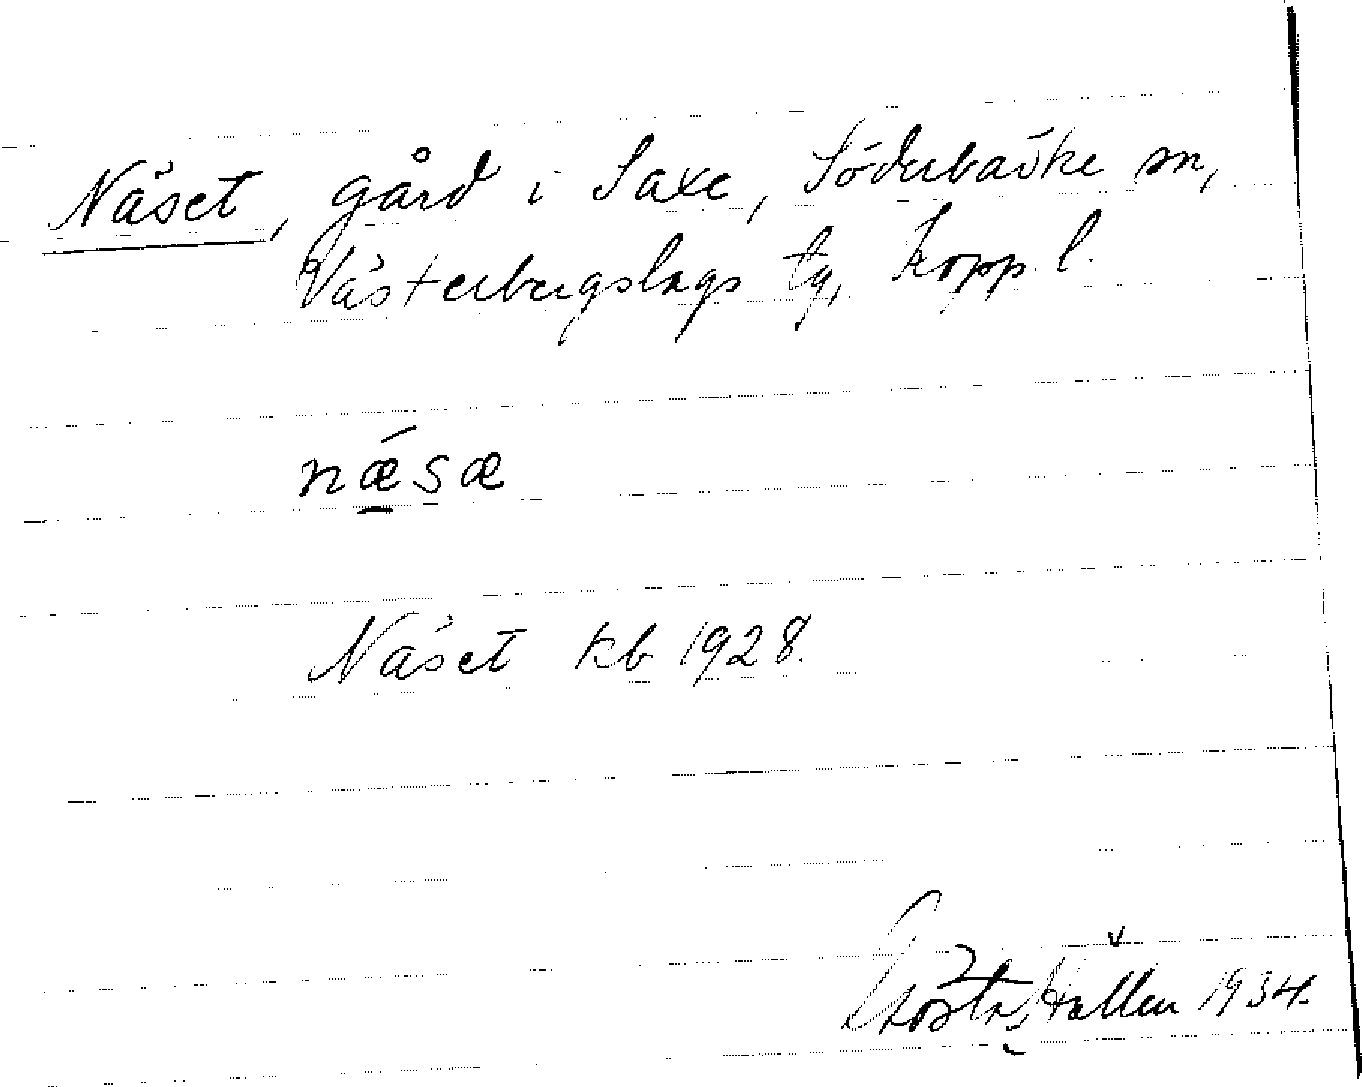 Näset, gård i Saxe, Söderbärke sn,
Västerbergslags tg, Kopp. l.
nǽsæ
Näset kb 1928.
Gösta Hallén 1934.